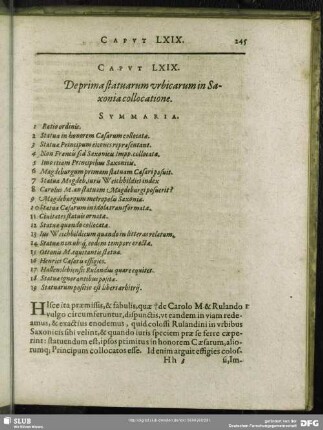 CAPVT LXIX. 245
CAPVT LXIX.
De prima statuarum vrbicarum in Sa-
xonia collocatione.
SVMMARIA.
1 Ratio ordinis.
2 Statuæ in honorem Cæsarum collocatæ.
3 Statuæ Principum eicones repræsentant.
4 Non Francis sed Saxonicis impp. collocatæ.
5
6 Magdeburgum primam statuam Cæsari posuit.
7 Statua Magdeb. iuris Weichbildici index.
8 Carolus M. an statuam Magdeburgi posuerit?
9 Magdeburgum metropolis Saxoniæ.
10 Statuæ Cæsarum in idola transformatæ.
11 Ciuitates statuis ornatæ.
12 Statuæ quando collocatæ.
13 Ius Weichbildicum quando in litteras relatum.
14 Statuæ non ubiq; eodem tempore erectæ.
15 Ottonis M. æquitantis statua.
16 Henrici Cæsaris effigies.
17 Hallensis Rulandus quare equitet.
18 Statuæ ignorantibus posita.
19 Statuarum positio est liberi arbitrij.
HIsce ita præmissis, & fabulis, quæ † de Carolo M. & Rulando 1
vulgo circumferuntur, dispunctis, vt eandem in viam rede-
amus, & exactius enodemus, quid colossi Rulandini in vrbibus
Saxonicis sibi velint, & quando iuris speciem præ se ferre cœpe-
rint: statuendum est, ipsos primitus in honorem Cæsarum, alio-
rumq; Principum collocatos esse. Id enim arguit effigies colos-
Hh 3 si, Im-
SLUB
Wir führen Wissen.
gefördert von der
Deutschen Forschungsgemeinschaft
DFG